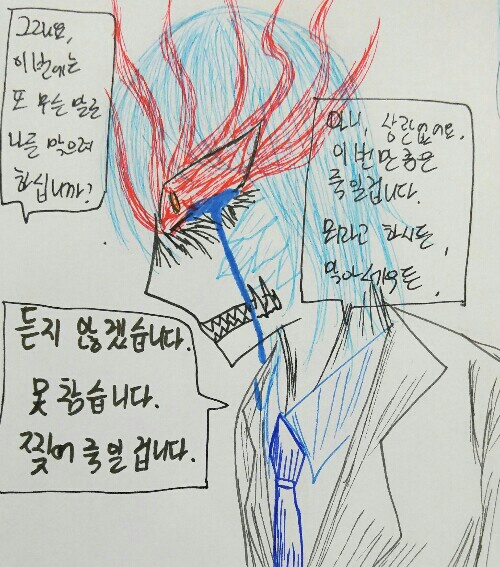 그래요,
이번에는
또 무슨 말로
나를 막으려
하십니까?
아니, 상관없어요.
이번만큼은
죽일겁니다.
뭐라고 하시든,
막아세우든,
듣지 않겠습니다.
못 참습니다.
찢어 죽일 겁니다.